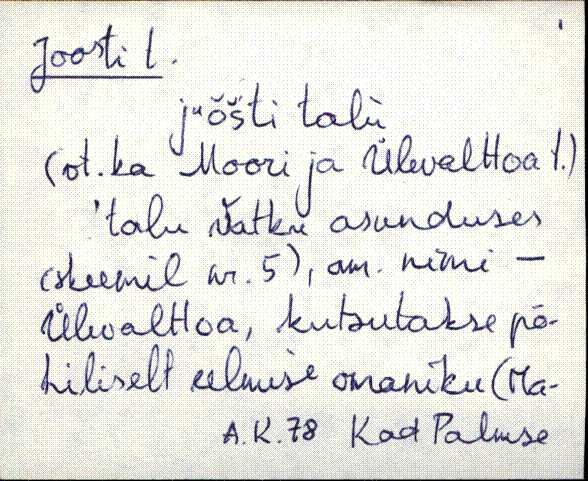 Joosti t.
jᵘošti talu
(vt. ka Moori ja Ülevaltoa t.)
'talu Vatku asunduses
(skeemil nr. 5), am. nimi –
Ülevaltoa, kutsutakse põ-
hiliselt eelmise omaniku (Ma-
A.K. 78 Kad Palmse